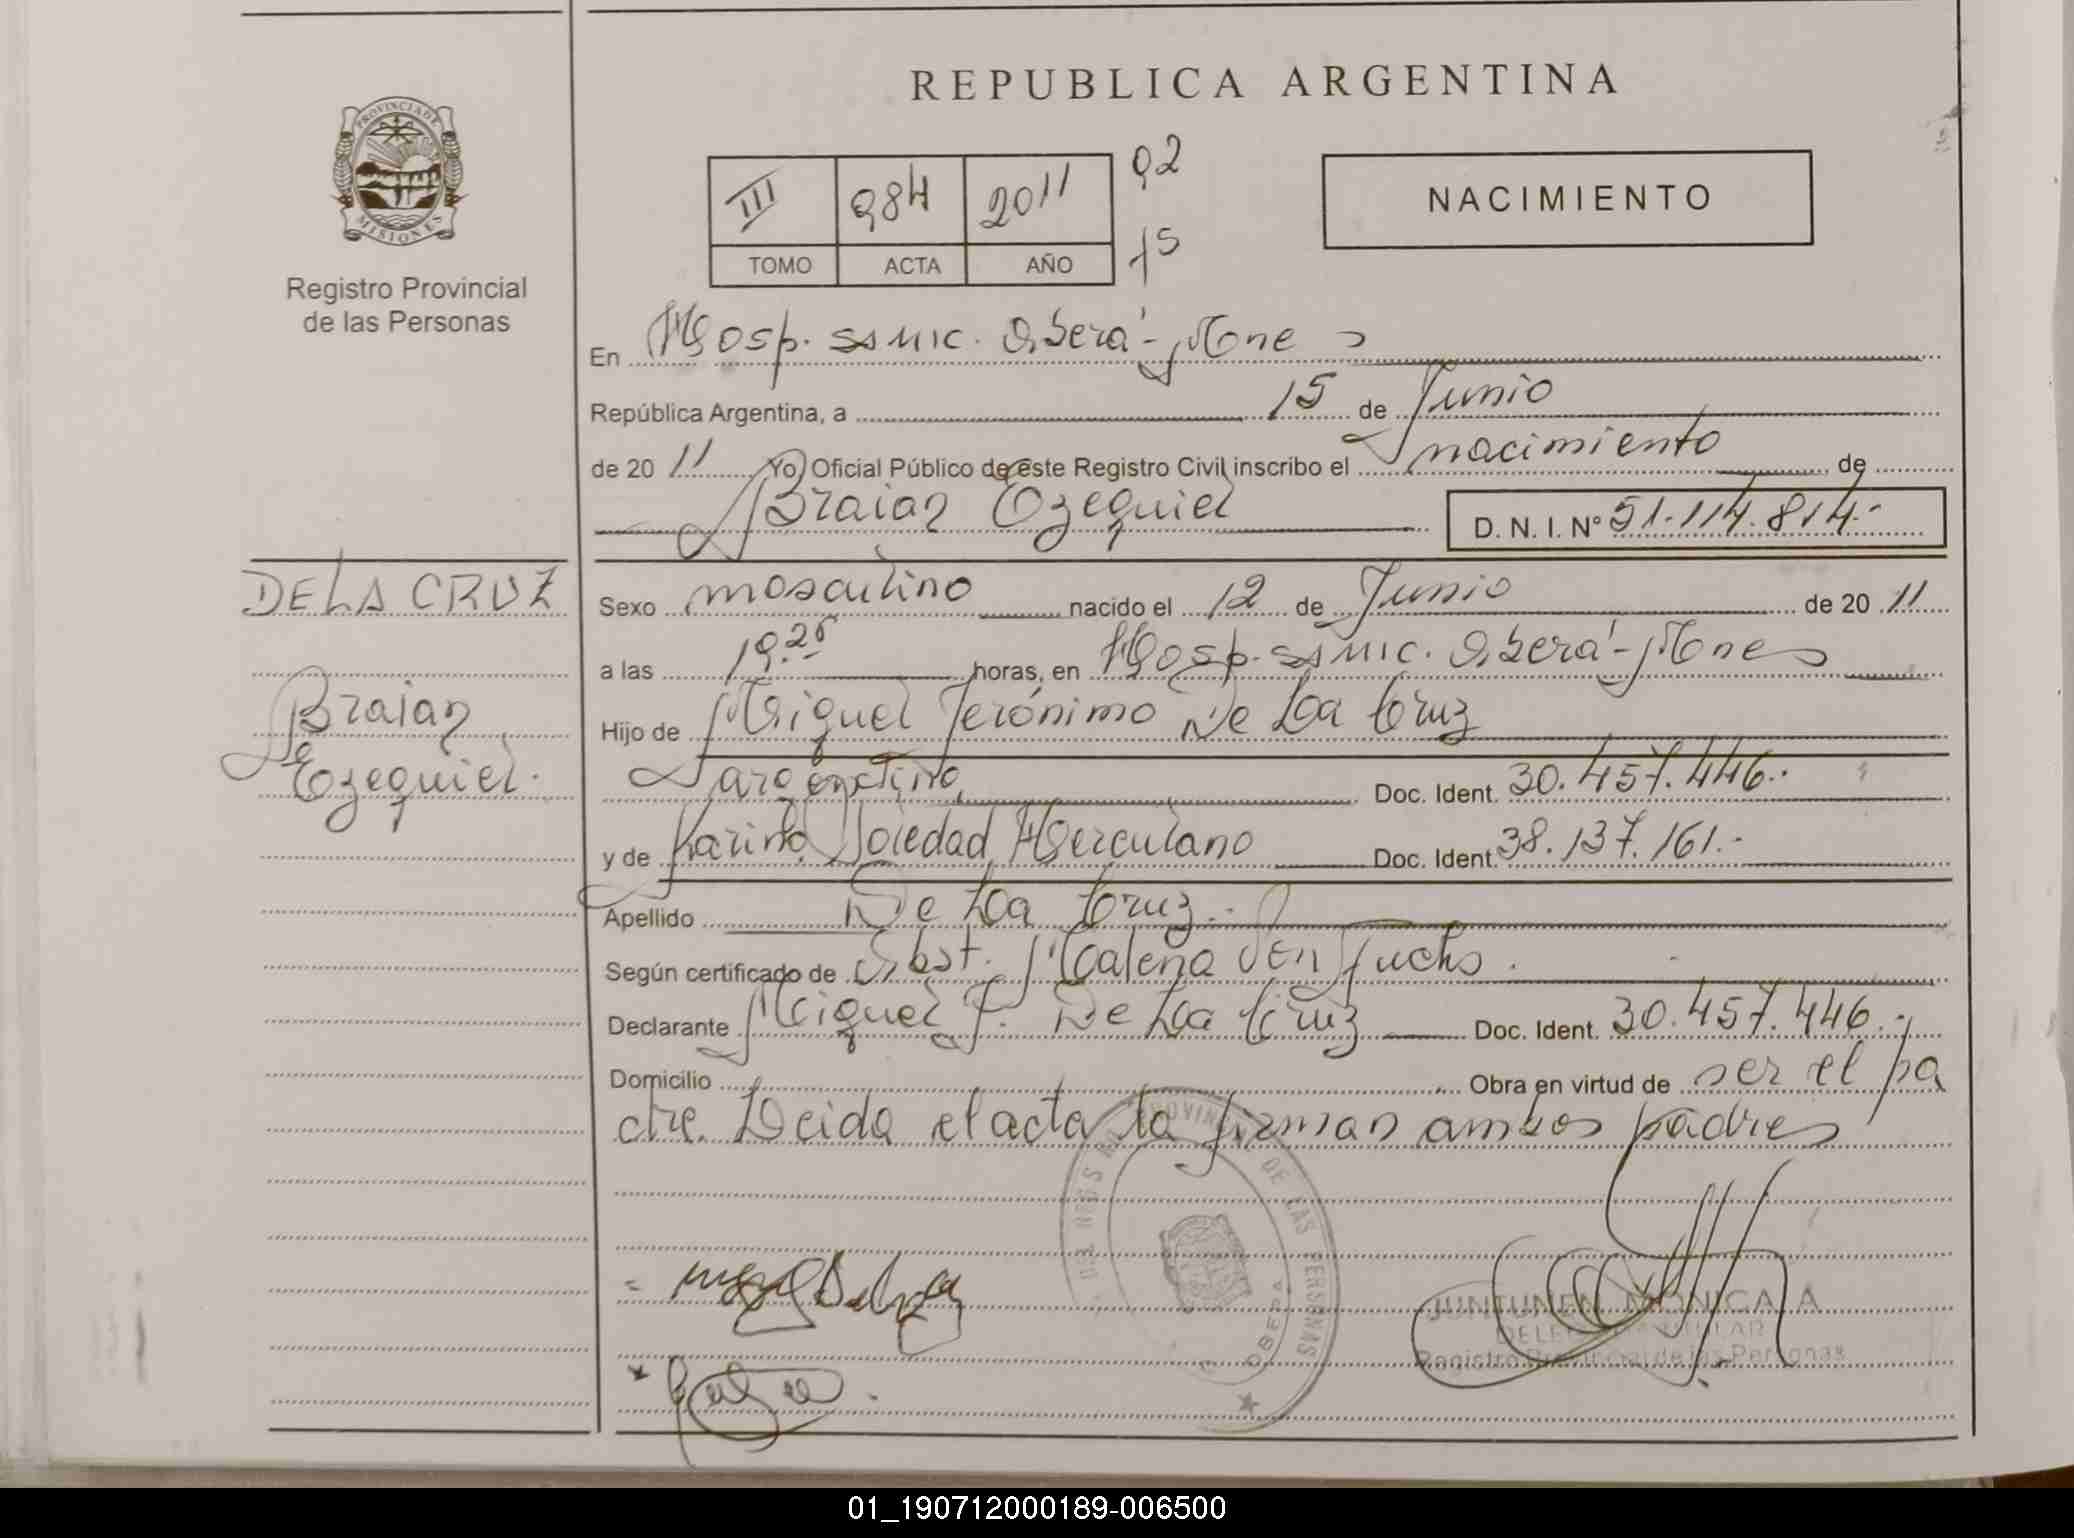 REPUBLICA ARGENTINA
PROVINCIA DE
MISIONES
Registro Provincial
de las Personas
III 984 2011
TOMO ACTA AÑO
02
15
NACIMIENTO
En Hosp. SSMIC. Oberá-Mnes
República Argentina, a 15 de Junio
de 20 11 Yo, Oficial Público de este Registro Civil inscribo el nacimiento de
Braian Ezequiel D. N. I. Nº 51.114.814.-
DE LA CRUZ
Braian
Ezequiel.
Sexo masculino nacido el 12 de Junio de 20 11
a las 19.25 horas, en Hosp. SSMIC. Oberá-Mnes
Hijo de Miguel Jerónimo De La Cruz
argentino, Doc. Ident. 30.457.446.-
y de Karina Soledad Herculano Doc. Ident. 38.137.161.-
Apellido De La Cruz.-
Según certificado de Obst. Malena
Declarante Miguel J. De La Cruz Doc. Ident. 30.457.446.-
Domicilio Obra en virtud de ser el pa
dre. Leida el acta la firman ambos padres
PROVINCIAL DE LAS PERSONAS
OBERA
JUNTUNEN MONICA A
Registro Provincial de las Personas
01_190712000189-006500